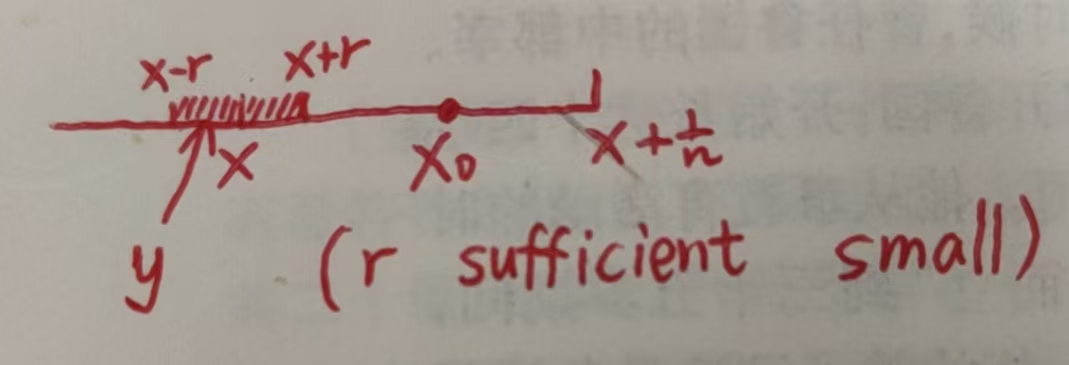 x-r x+r
x x₀ x+1/n
y (r sufficient small)